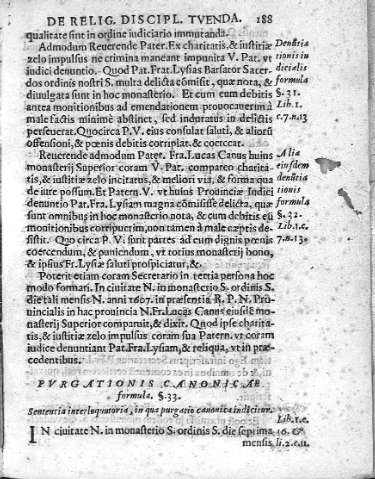 DE RELIG. DISCIPL. TVENDA. 188
qualitate sint in ordine iudiciario immutanda.
Admodum Reuerende Pater. Ex charitatis, & iustitiæ
zelo impulsus ne crimina maneant impunita V. Pat. vt
iudici denuntio. Quod Pat. Frat. Lysias Barsator Sacer
dos ordinis nostri S. multa delicta cõmisit, quæ nota, &
diuulgata sunt in hoc monasterio. Et cum eum debitis
antea monitionibus ad emendationem prouocauerim à
male factis minimè abstinet, sed induratus in delictis
perseuerat. Quocirca P. V. eius consulat saluti, & aliorũ
offensioni, & pœnis debitis corripiat, & coerceat.
Denũtia
tionis in
dicialis
formula
§. 31.
Lib. 1.
c. 7. n. 13
Reuerende admodum Pater. Fra. Lucas Canus huius
monasterij Superior coram V. Pat. compareo charita-
tis, & iustitiæ zelo incitatus, & meliori via, & forma qua
de iure possum. Et Patern. V. vt huius Prouinciæ Iudici
denuntio Pat. Fra. Lysiam magna cõmisisse delicta, quæ
sunt omnibus in hoc monasterio nota, & cum debitis eũ
monitionibus corripuerim, non tamen à male cæptis de-
sistit. Quo circa P. V. sunt partes ad eum dignis pœnis
coercendum, & puniendum, vt totius monasterij bono,
& ipsius Fr. Lysiæ saluti prospiciatur, &.
Alia
eiusdem
denũtia
tionis
formula
§. 32.
Lib. 1. c.
7. n. 13.
Poterit etiam coram Secretario in tertia persona hoc
modo formari. In ciuitate N. in monasterio S. ordinis S.
die tali mensis N. anni 1607. in præsentia R. P. N. Prou-
uincialis in hac prouincia N. Fr. Lucas Canus eiusdẽ mo-
nasterij Superior comparuit, & dixit. Quod ipse charita-
tis, & iustitiæ zelo impulsus coram sua Patern. vt coram
iudice denuntiat Pat. Fra. Lysiam, & reliqua, vt in præ-
cedentibus.
PVRGATIONIS CANONICAE
formula. §. 33.
Sententia interloquutoria, in qua purgatio canonica indicitur.
IN ciuitate N. in monasterio S. ordinis S. die septima
mensis
Lib. 1. c.
16. &
li. 2. c. 11.